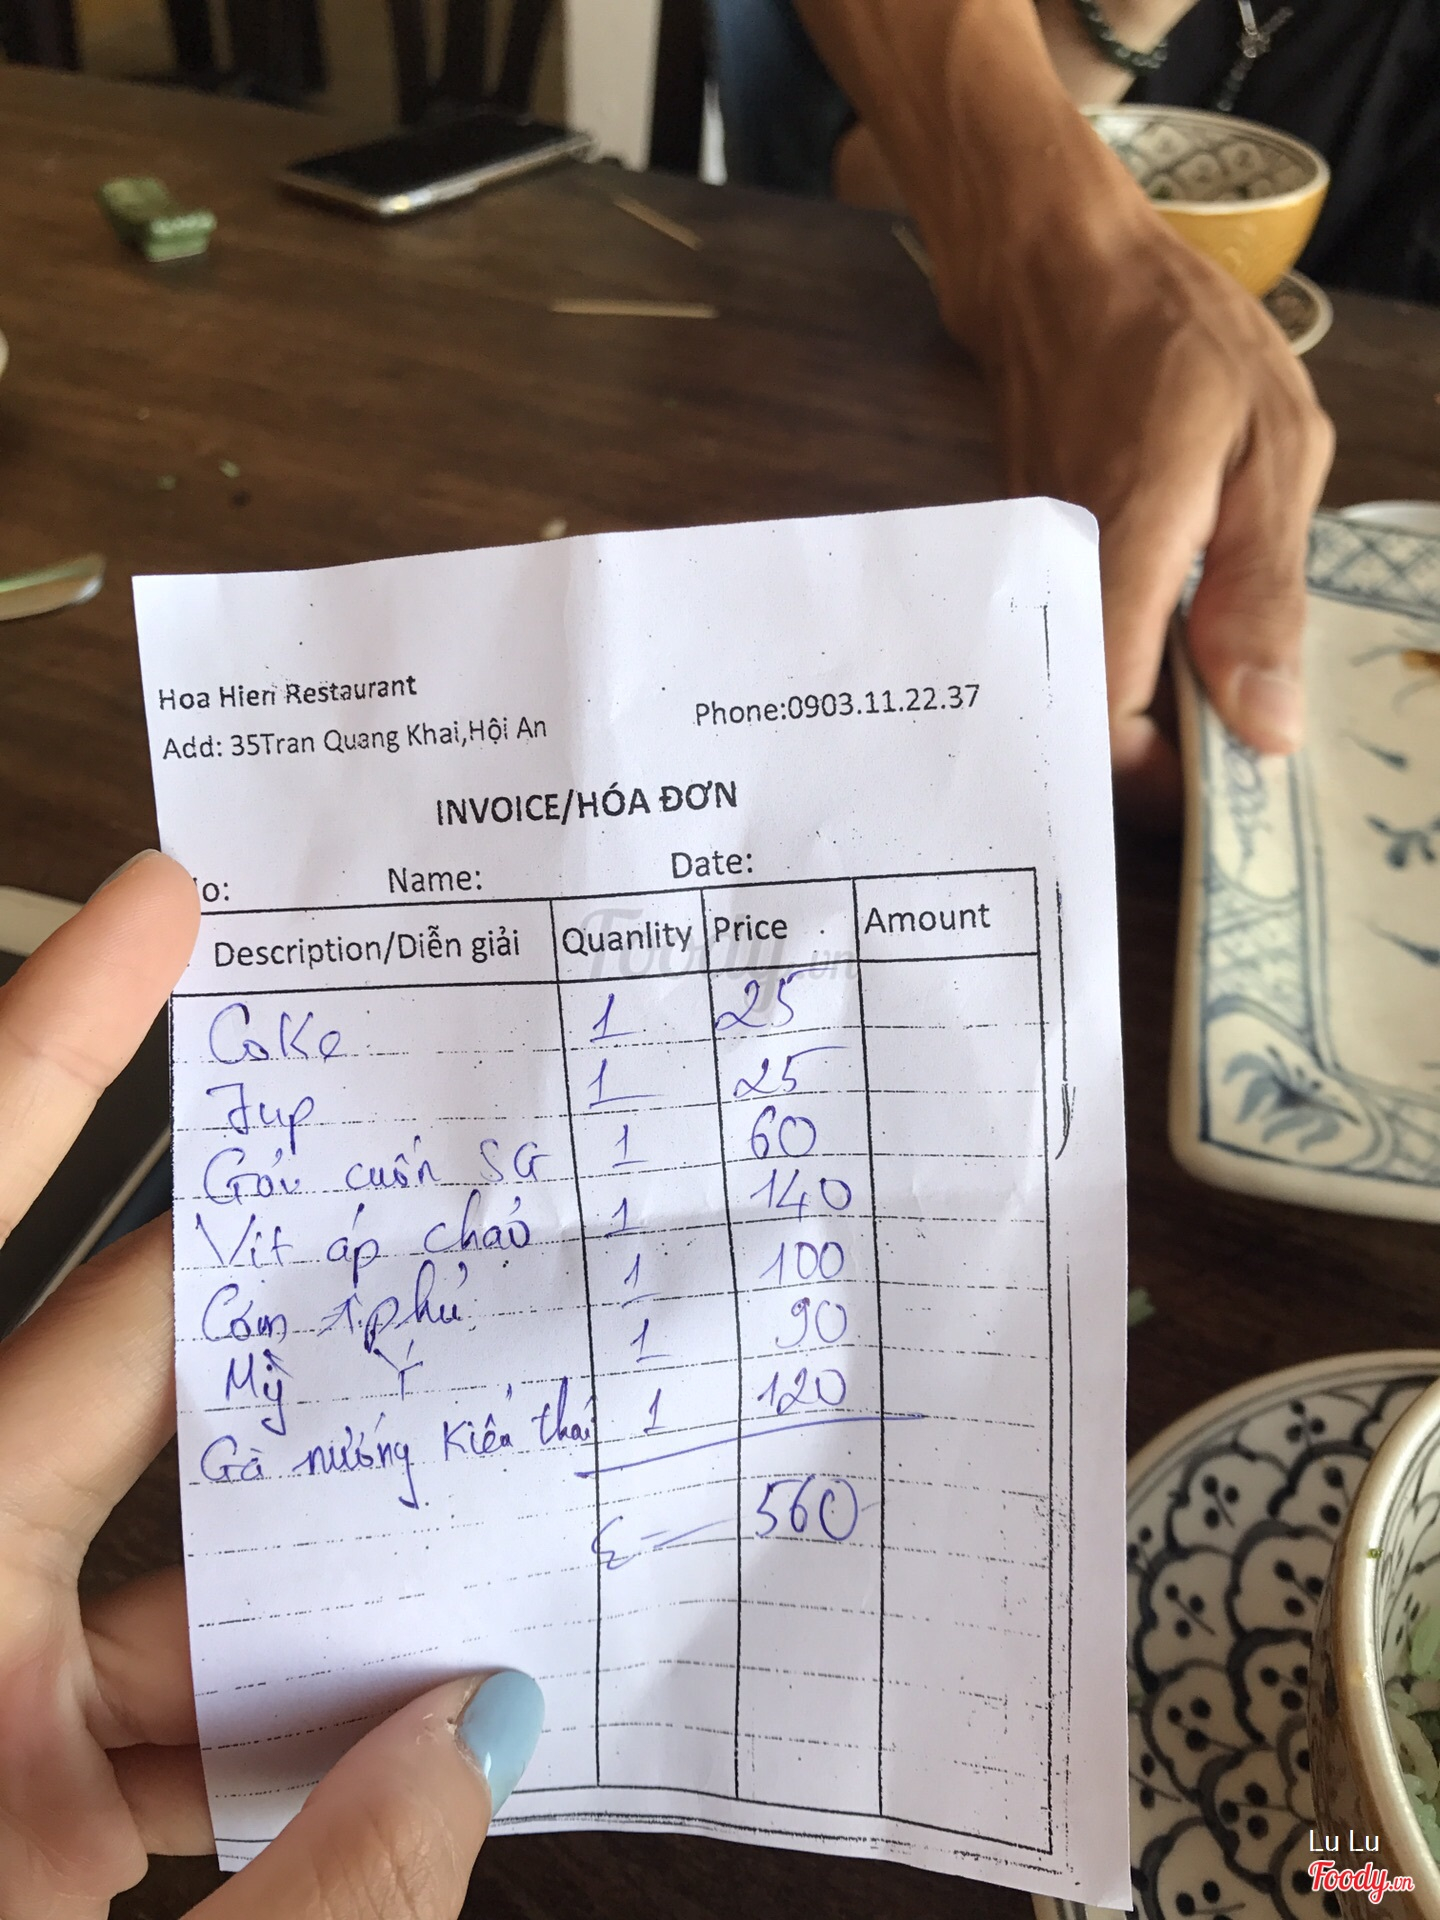 Hoa Hien Restaurant
Add: 35Tran Quang Khai,Hội An
Phone:0903.11.22.37
INVOICE/HÓA ĐƠN
o: Name: Date:
Description/Diễn giải Quanlity Price Amount
Coke 1 25
7up 1 25
Gỏi cuốn SG 1 60
Vịt áp chảo 1 140
Cơm  phủ 1 100
Mỳ Ý 1 90
Gà nướng Kiểu thái 1 120
Σ = 560
Foody.vn
Lu Lu
Foody.vn